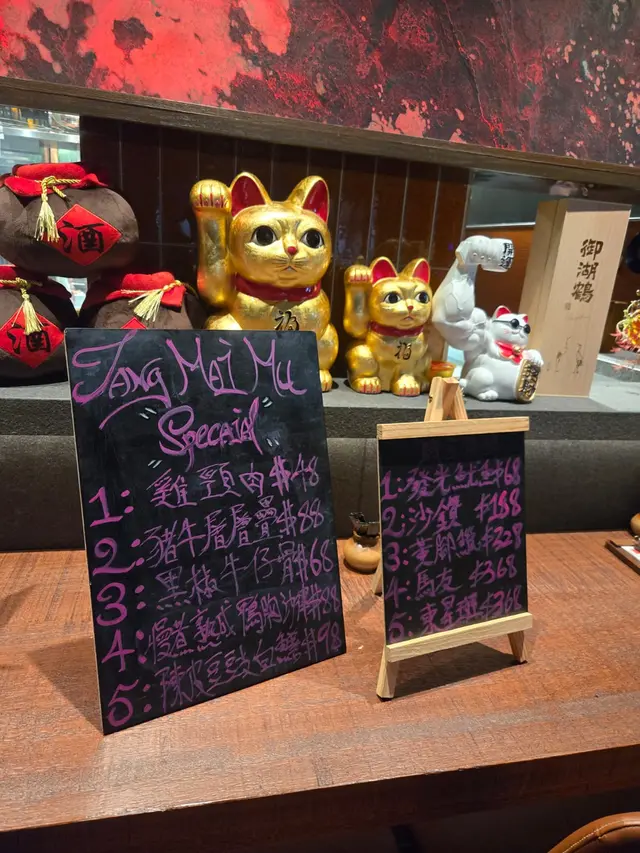 酒
酒
福
福
御湖鶴
Tang Mai Mu
"Specail"
1: 雞頸肉 $48
2: 豬牛層層疊 $88
3: 黑椒牛仔骨 $68
4: 慢煮熟成鴨胸沙律 $88
5: 陳皮豆豉白鱔 $98
1: 發光魷魚 $68
2: 沙鑽 $188
3: $228
4: 馬友 $368
5: 東星斑 $368